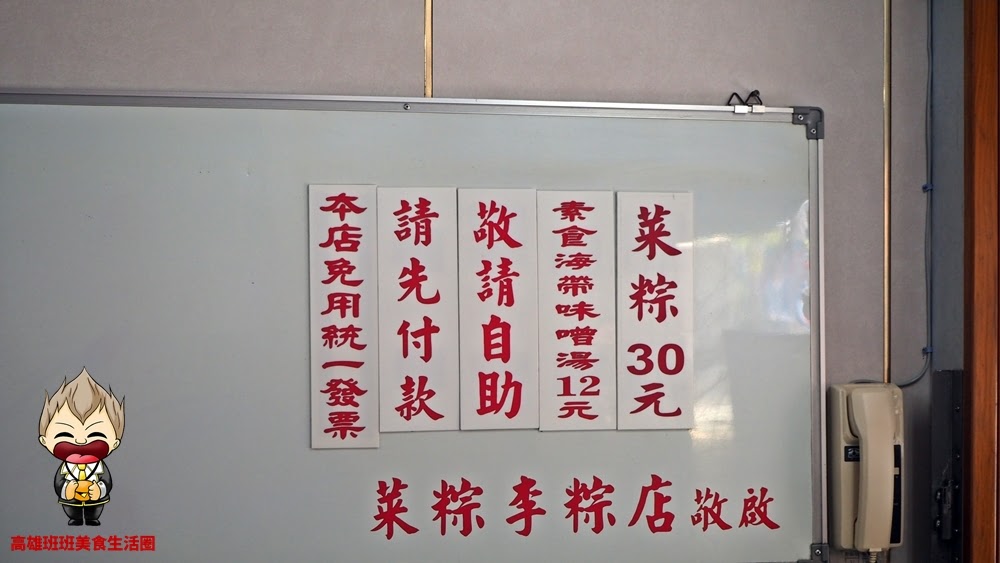 菜粽30元
素食海帶味噌湯12元
敬請自助
請先付款
本店免用統一發票
菜粽李粽店敬啟
高雄班班美食生活圈